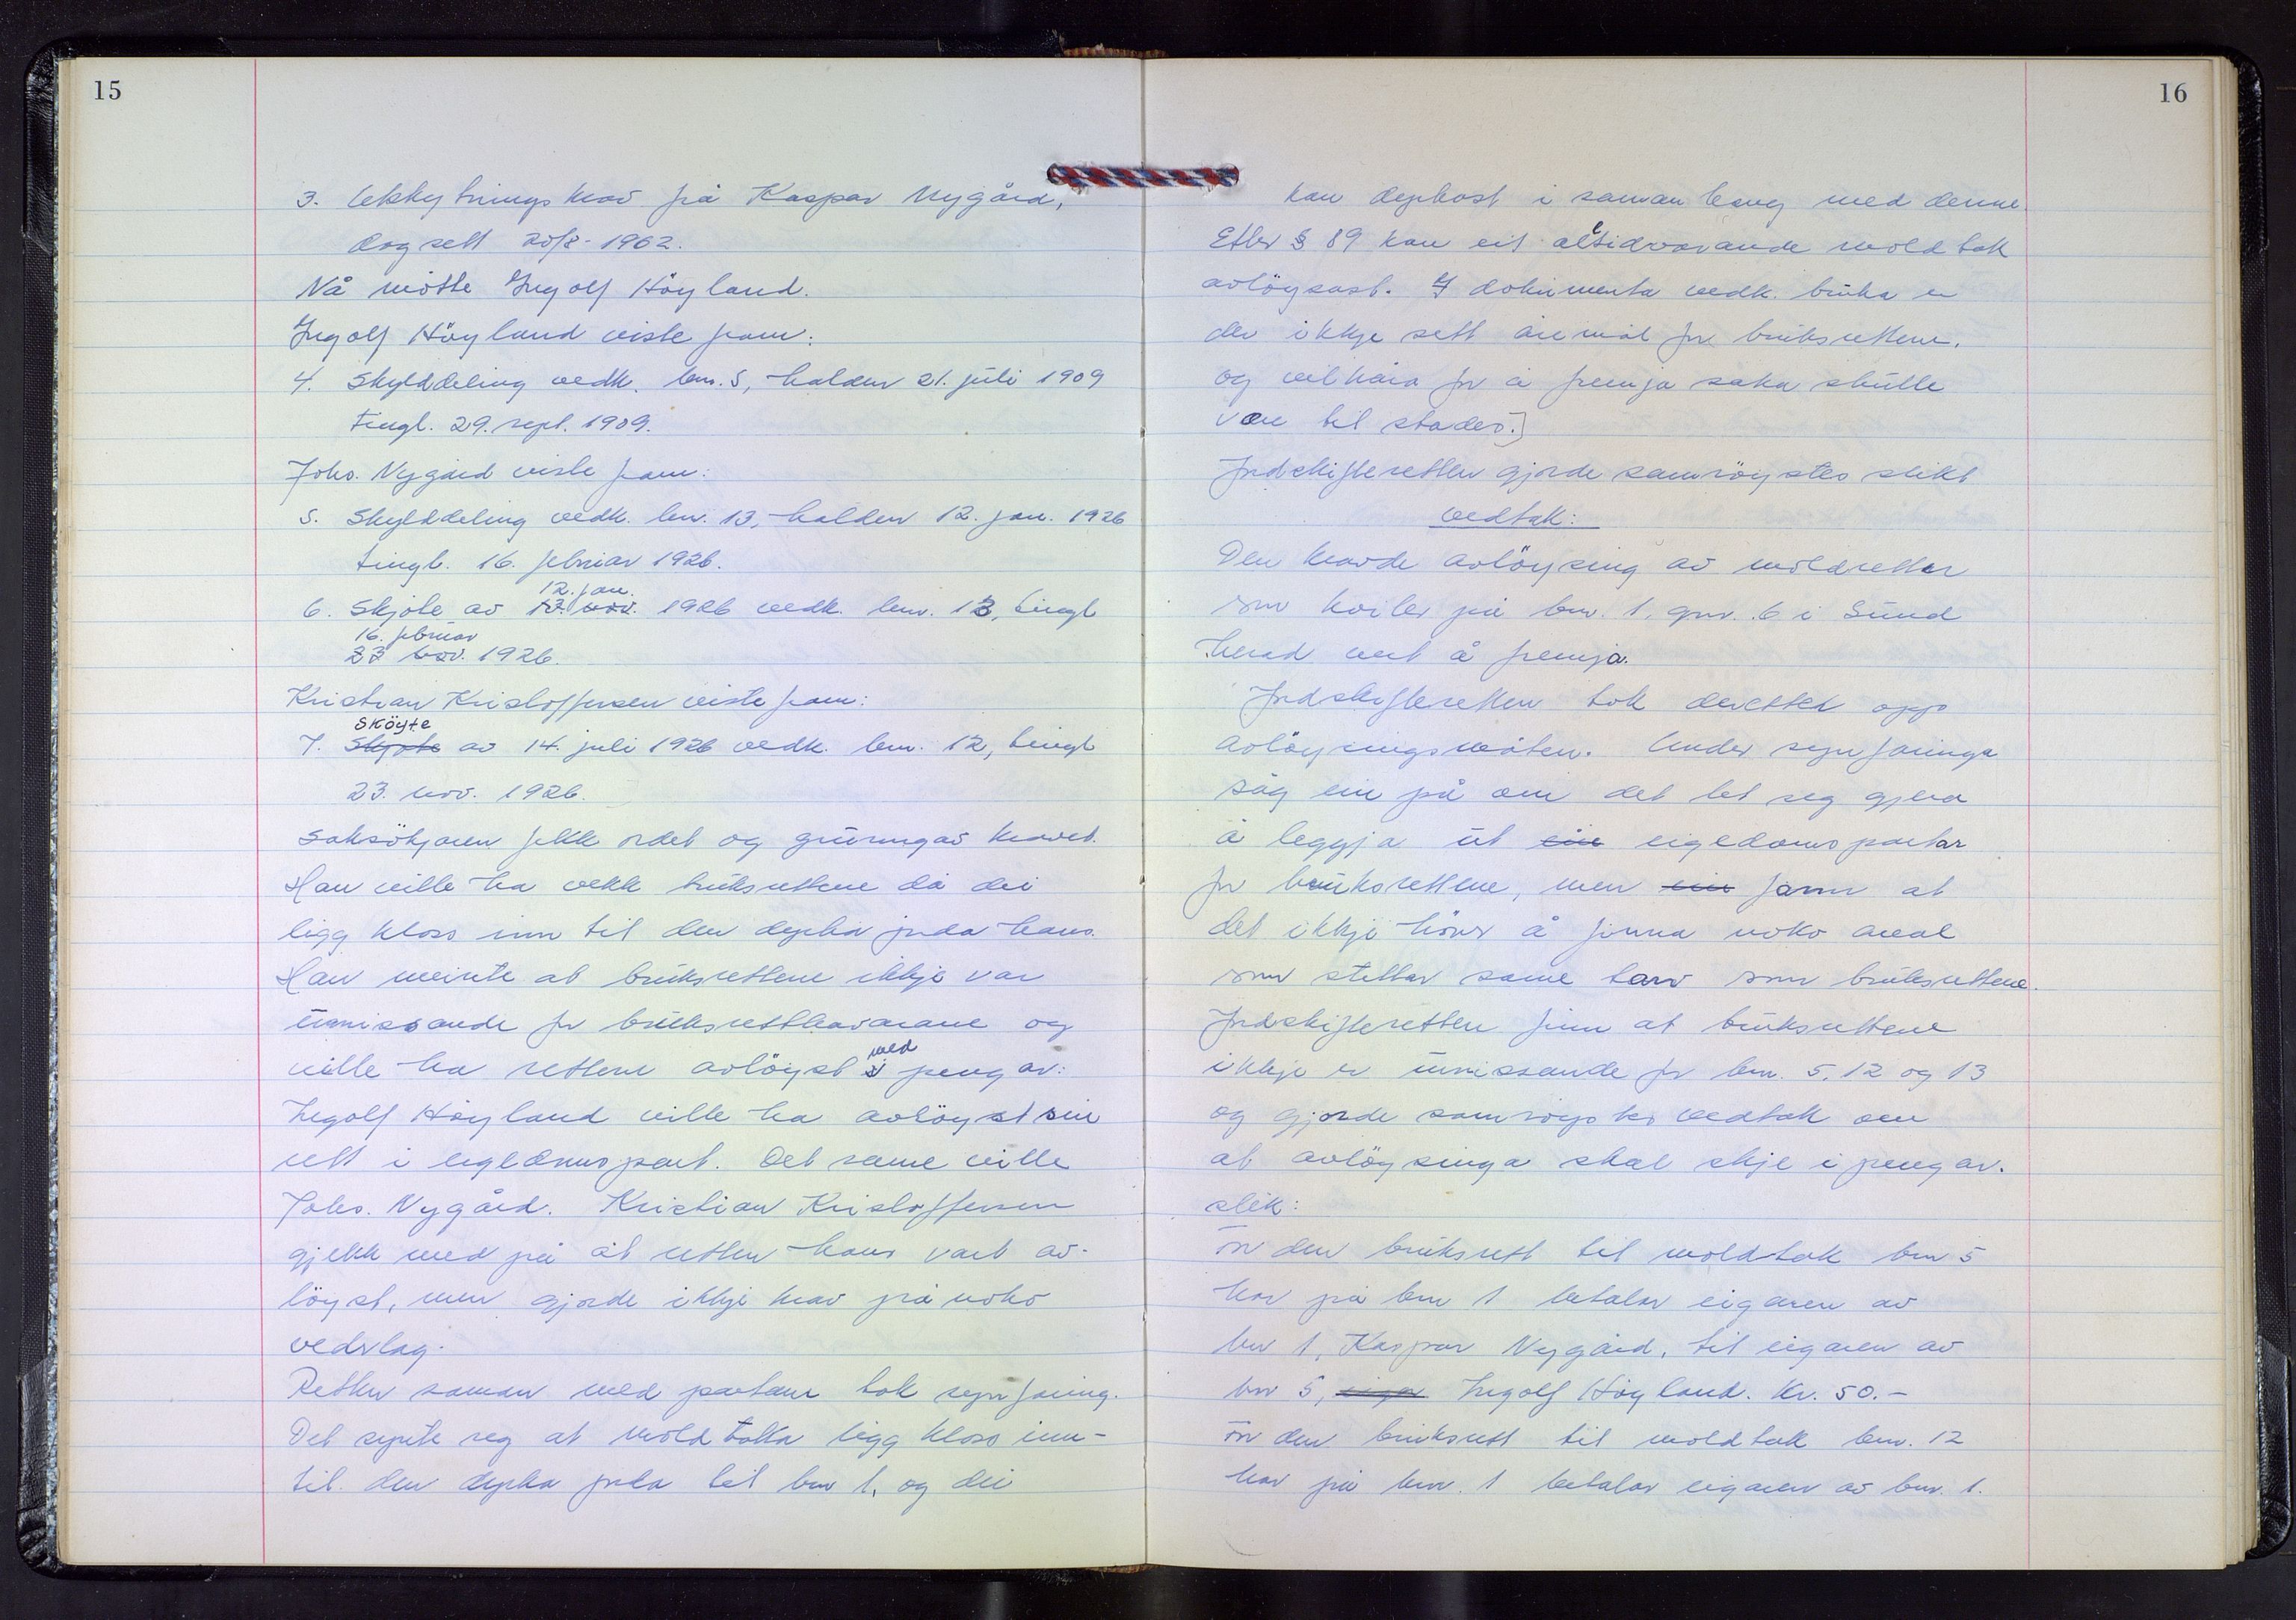 15
3. Utskytnings krav frå Kaspar Nygård,
dagsett 20/8-1962.
Nå møtte Ingolf Höyland.
Ingolf Höyland viste fram:
4. Skylddeling vedk. bnr. 5, halden 21. juli 1909
tingl. 29. sept. 1909.
Johs. Nygård viste fram:
5. Skylddeling vedk. bnr. 13, halden 12. jan. 1926
tingl. 16. februar 1926.
12. jan.
6. Skjöte av 12. nov. 1926 vedk. bnr. 13, tingl
16. februar
23 nov. 1926.
Kristian Kristoffersen viste fram:
Sköyte
7. Skjöte av 14. juli 1926 vedk. bnr. 12, tingl
23. nov. 1926.
Saksökjaren fekk ordet og grunngav kravet.
Han ville ha vekk bruksrettene då dei
ligg kloss inn til den dyrka jorda hans.
Han meinte at bruksrettene ikkje var
umissande for bruksretthavarane og
med
ville ha rettene avlöyst i pengar:
Ingolf Höyland ville ha avlöyst sin
rett i eigedomspart. Det same ville
Johs. Nygård. Kristian Kristoffersen
gjekk med på at retten hans vart av-
löyst, men gjorde ikkje krav på noko
vederlag.
Retten saman med partane tok synfaring.
Det synte seg at moldtaka ligg kloss inn-
til den dyrka jorda til bnr 1, og dei
16
kan dyrkast i samanheng med denne.
Etter § 89 kan eit alltidvarande moldtak
avlöysast. I dokumenta vedk. bruka er
der ikkje sett åremål for bruksrettene,
og vilkåra for å fremja saka skulle
være til stades.]
Jordskifteretten gjorde samröystes slikt
vedtak:
Den kravde avlöysing av moldretter
som kviler på bnr. 1, gnr. 6 i Sund
herad vert å fremja.
Jordskifteretten tok deretter opp
avlöysingsmåten. Under synfaringa
såg ein på om det let seg gjera
å leggja ut ein eigedomspartar
for bruksrettene, men ein fann at
det ikkje höver å finna noko areal
som stettar same tarv som bruksrettene.
Jordskifteretten finn at bruksrettene
ikkje er umissande for bnr. 5, 12 og 13
og gjorde samröystes vedtak om
at avlöysinga skal skje i pengar.
slik:
For den bruksrett til moldtak bnr 5
har på bnr 1 betalar eigaren av
bnr 1, Kaspar Nygård, til eigaren av
bnr 5, eigar Ingolf Höyland. Kr. 50.-
For den bruksrett til moldtak bnr. 12
har på bnr. 1 betalar eigaren av bnr. 1.